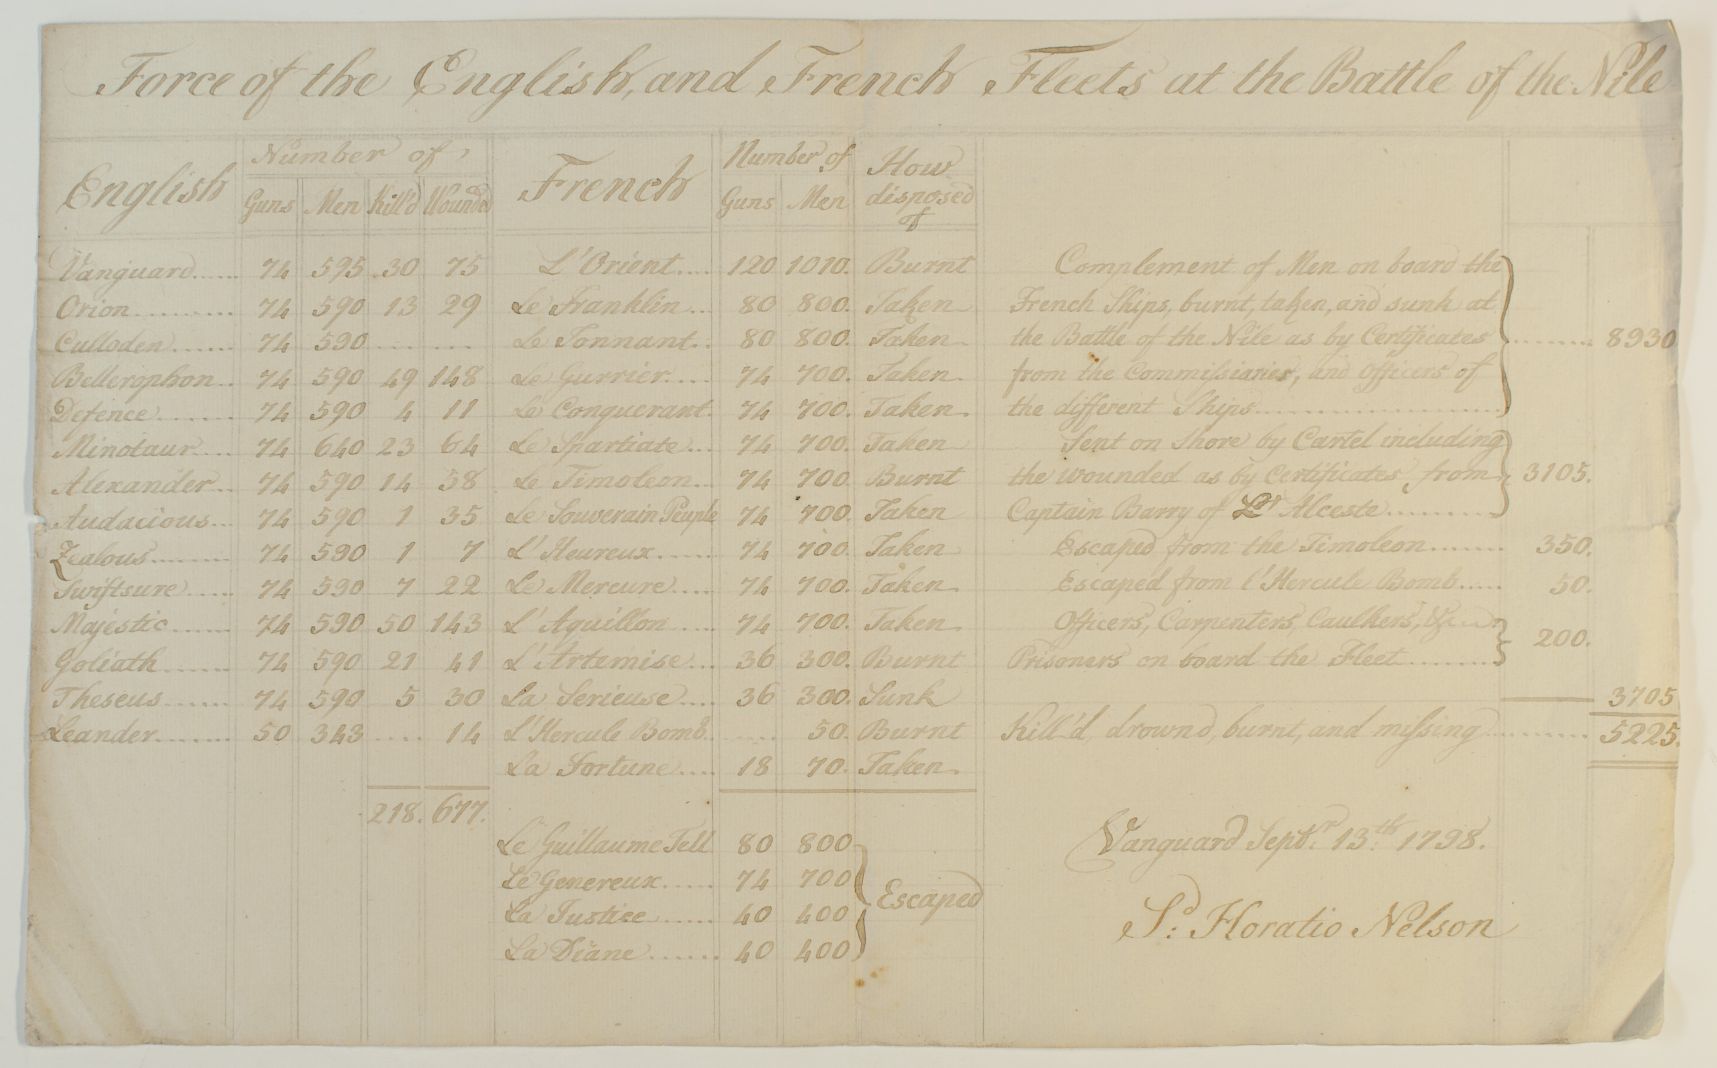 Force of the English, and French Fleets at the Battle of the Nile
English Number of French Number of How disposed of
Guns Men Kill'd Wounded Guns Men
Vanguard...... 74 595 30 75 L'Orient.... 120 1010. Burnt
Orion......... 74 590 13 29 Le Franklin... 80 800. Taken
Culloden...... 74 590 .... .... Le Tonnant.. 80 800. Taken
Bellerophon.. 74 590 49 148 Le Gurrier.... 74 700. Taken.
Defence....... 74 590 4 11 Le Conquerant. 74 700. Taken.
Minotaur.... 74 640 23 64 Le Spartiate... 74 700. Taken
Alexander.. 74 590 14 58 Le Timoleon... 74 700 Burnt
Audacious... 74 590 1 35 Le Souverain Peuple 74 700. Taken
Zealous....... 74 590 1 7 L'Heureux...... 74 700. Taken
Swiftsure..... 74 590 7 22 Le Mercure.... 74 700. Taken.
Majestic...... 74 590 50 143 L'Aquillon.... 74 700. Taken.
Goliath....... 74 590 21 41 L'Artemise... 36 300. Burnt
Theseus...... 74 590 5 30 La Serieuse.... 36 300. Sunk
Leander....... 50 343 .... 14 L'Hercule Bomb. .... 50. Burnt
La Fortune.... 18 70. Taken.
218. 677.
Le Guillaume Tell 80 800
Le Genereux..... 74 700
La Justice...... 40 400
La Diane...... 40 400
Escaped
Complement of Men on board the
French Ships, burnt, taken, and sunk at
the Battle of the Nile as by Certificates ........ 8930
from the Commissiaries, and Officers of
the different Ships....................
Sent on Shore by Cartel including
the wounded as by Certificates from 3105.
Captain Barry of L' Alceste..........
Escaped from the Timoleon....... 350.
Escaped from l'Hercule Bomb..... 50.
Officers, Carpenters, Caulkers, &c
Prisoners on board the Fleet......... 200.
3705
Kill'd, drownd, burnt, and missing.......... 5225.
Vanguard Septr. 13th. 1798.
Sd: Horatio Nelson